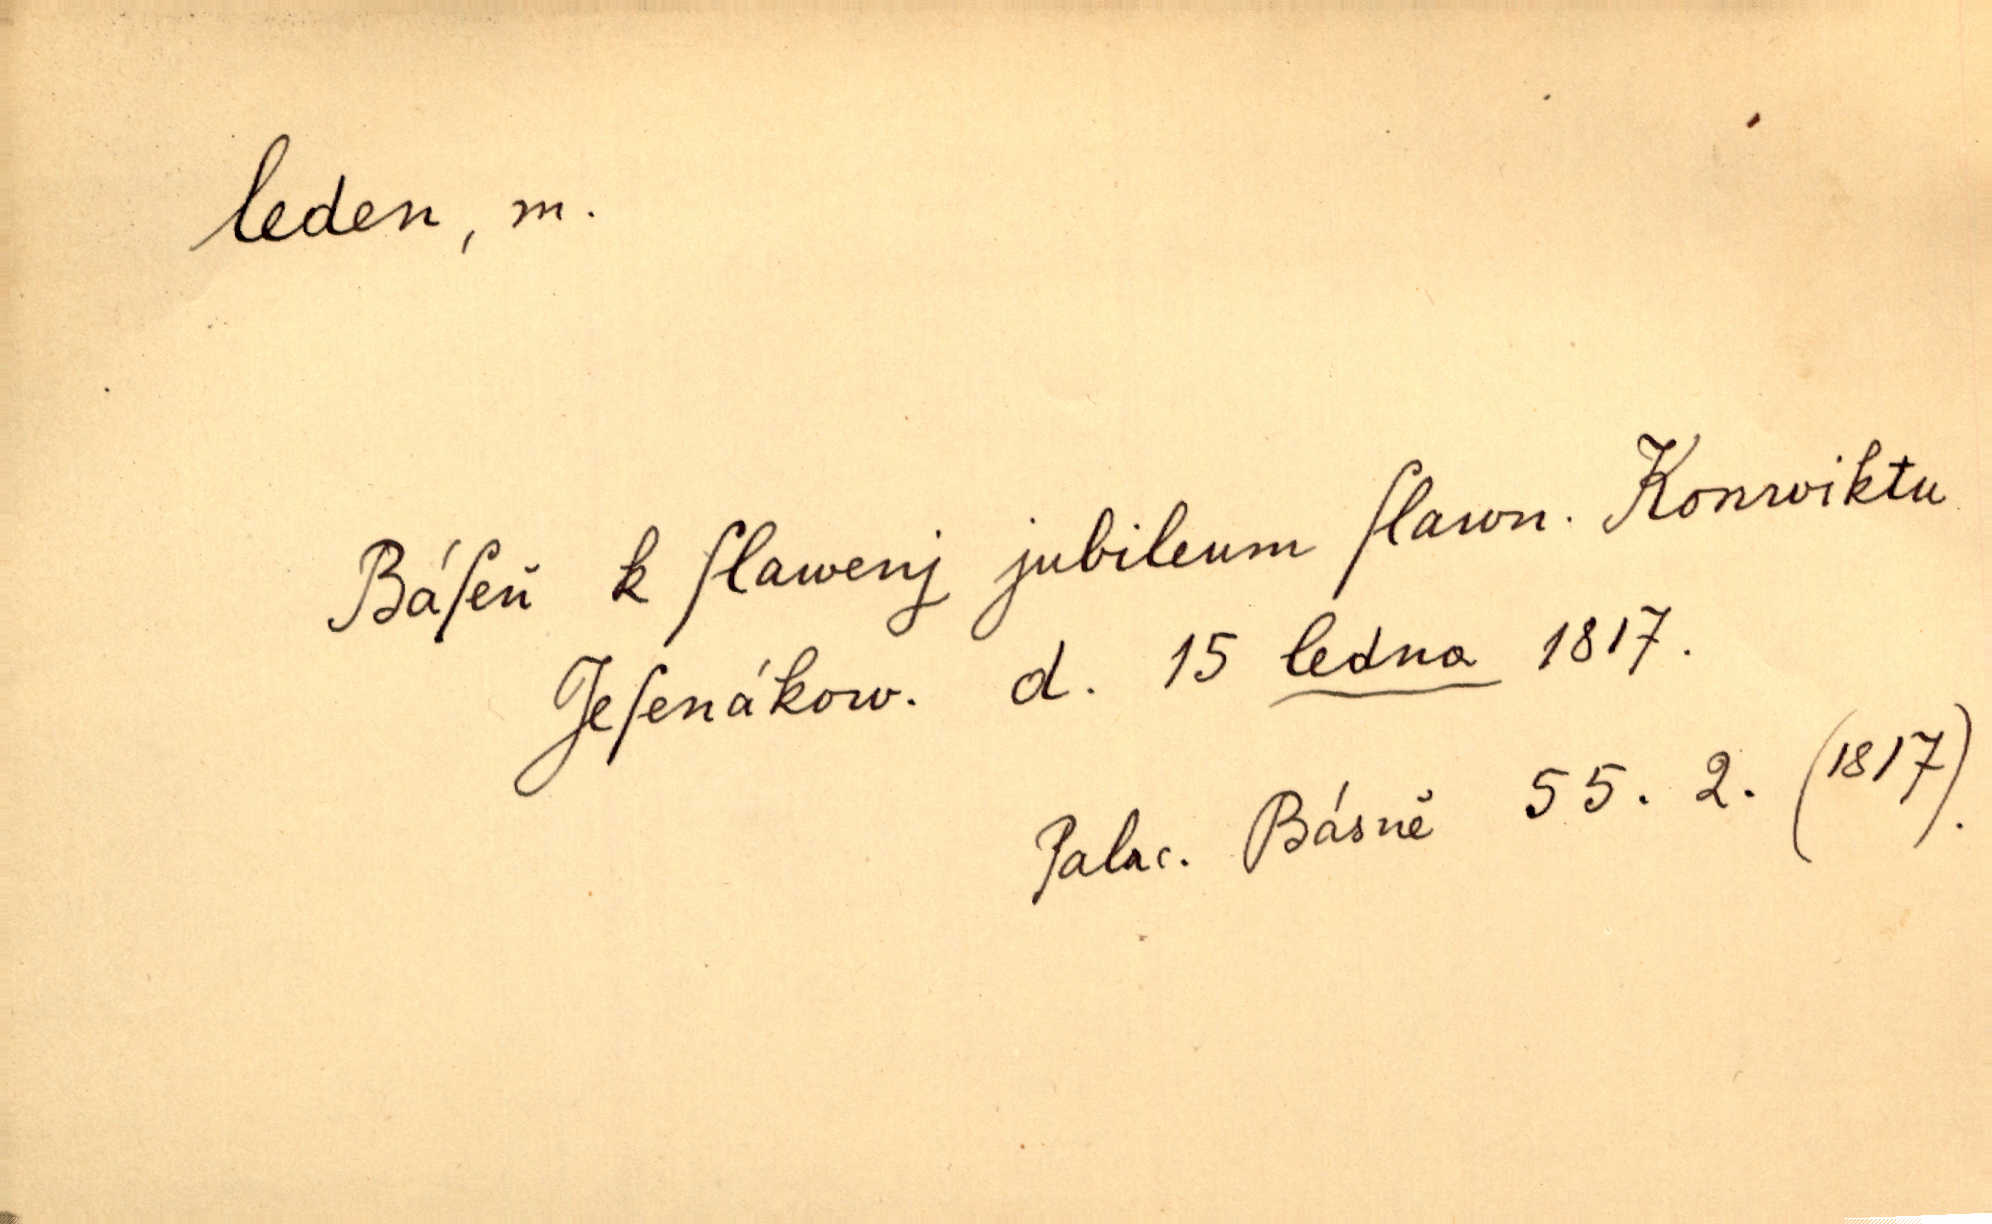 leden, m.
Báſeň k ſlawenj jubileum ſlawn. Konwiktu
Jeſenákow. d. 15 ledna 1817.
Palac. Básně 55. 2. (1817).